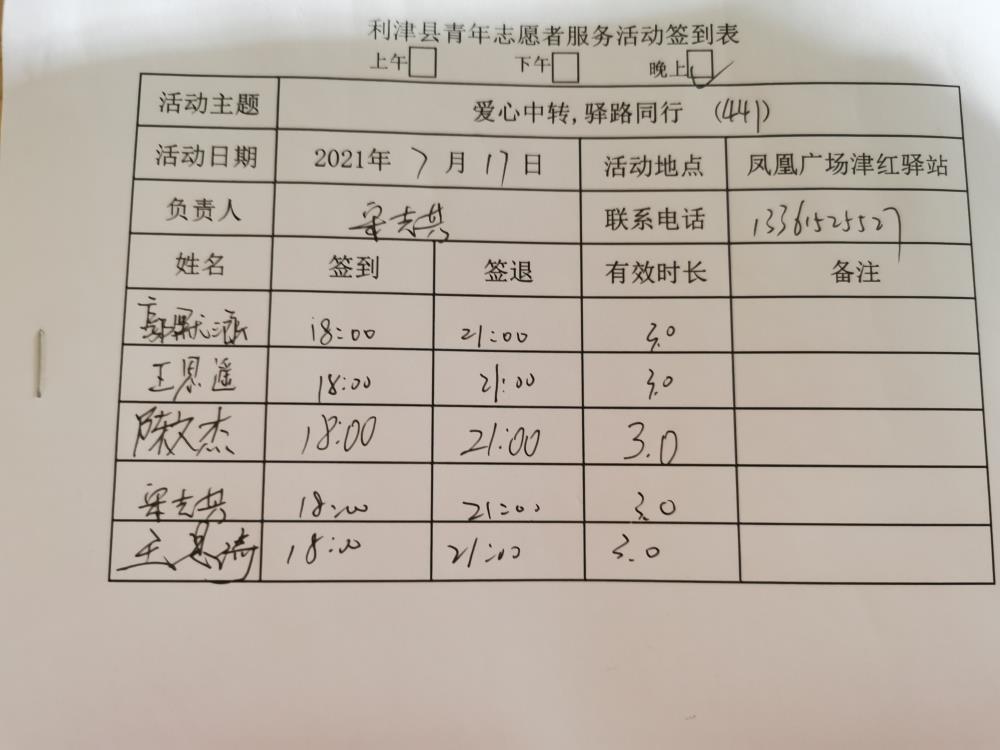 利津县青年志愿者服务活动签到表
上午 下午 晚上
活动主题 爱心中转,驿路同行 (441)
活动日期 2021年 7 月 17 日 活动地点 凤凰广场津红驿站
负责人 联系电话 13361525527
姓名 签到 签退 有效时长 备注
18:00 21:00 3.0
王思遥 18:00 21:00 3.0
陈文杰 18:00 21:00 3.0
18:00 21:00 3.0
王 18:00 21:00 3.0